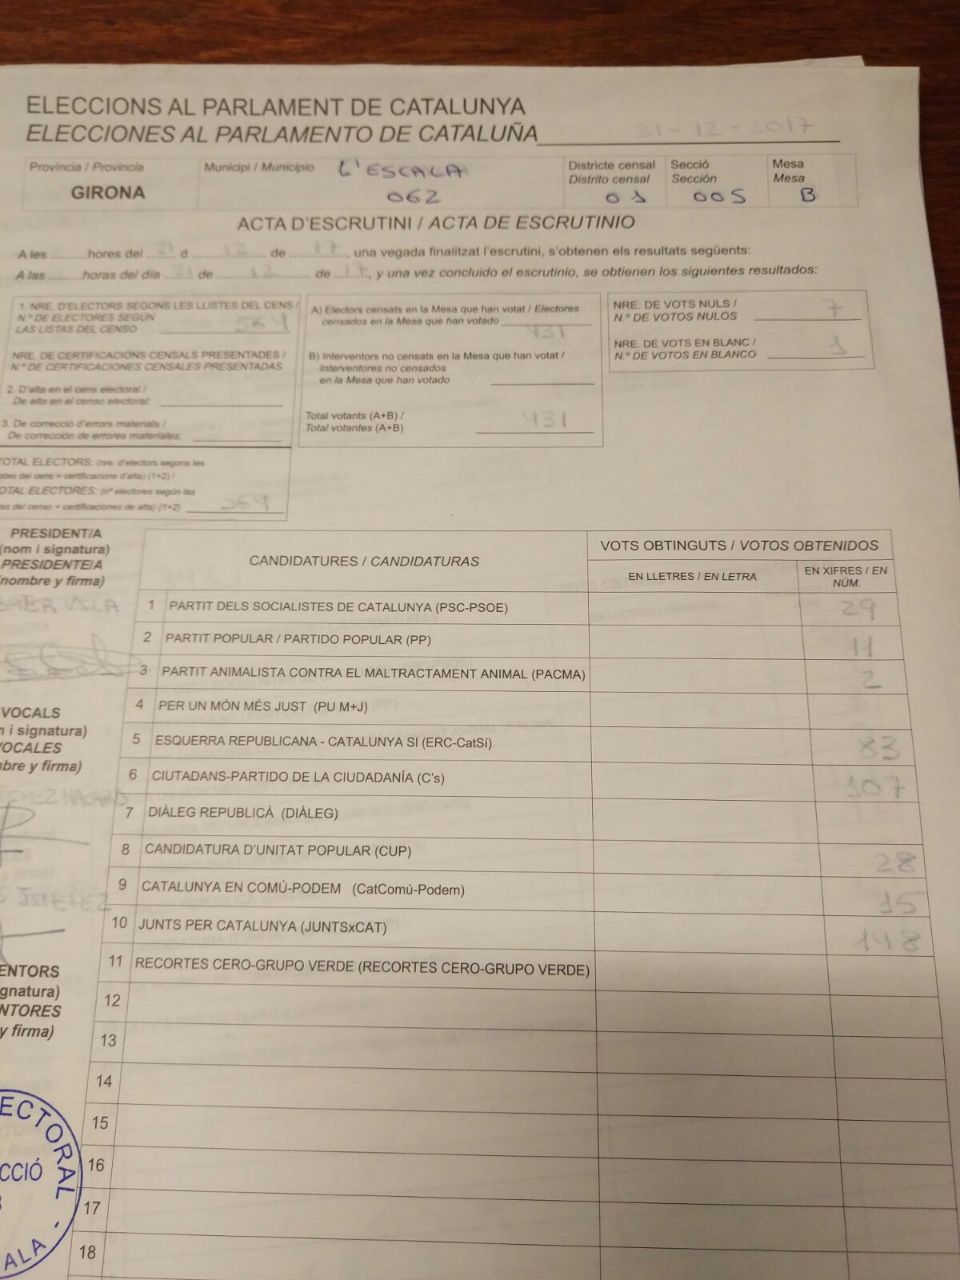 ELECCIONS AL PARLAMENT DE CATALUNYA
ELECCIONES AL PARLAMENTO DE CATALUÑA 21-12-2017
Província / Provincia
GIRONA
Municipi / Municipio L'ESCALA
062
Districte censal
Distrito censal
01
Secció
Sección
005
Mesa
Mesa
B
ACTA D'ESCRUTINI / ACTA DE ESCRUTINIO
A les ........ hores del 21 d 12 de 17, una vegada finalitzat l'escrutini, s'obtenen els resultats següents:
A las ........ horas del día 21 de 12 de 17, y una vez concluido el escrutinio, se obtienen los siguientes resultados:
1. NRE. D'ELECTORS SEGONS LES LLISTES DEL CENS /
N.º DE ELECTORES SEGÚN
LAS LISTAS DEL CENSO 564
NRE. DE CERTIFICACIONS CENSALS PRESENTADES /
N.º DE CERTIFICACIONES CENSALES PRESENTADAS
2. D'alta en el cens electoral /
De alta en el censo electoral:
3. De correcció d'errors materials /
De corrección de errores materiales:
TOTAL ELECTORS: (nre. d'electors segons les
tes del cens + certificacions d'alta) (1+2) /
TOTAL ELECTORES: (nº electores según las
tas del censo + certificaciones de alta) (1+2) 564
A) Electors censats en la Mesa que han votat / Electores
censados en la Mesa que han votado
431
B) Interventors no censats en la Mesa que han votat /
Interventores no censados
en la Mesa que han votado
Total votants (A+B) /
Total votantes (A+B) 431
NRE. DE VOTS NULS /
N.º DE VOTOS NULOS 7
NRE. DE VOTS EN BLANC /
N.º DE VOTOS EN BLANCO 1
PRESIDENT/A
(nom i signatura)
PRESIDENTE/A
(nombre y firma)
VOCALS
m i signatura)
VOCALES
mbre y firma)
ENTORS
gnatura)
NTORES
y firma)
CANDIDATURES / CANDIDATURAS
VOTS OBTINGUTS / VOTOS OBTENIDOS
EN LLETRES / EN LETRA
EN XIFRES / EN
NÚM.
1 PARTIT DELS SOCIALISTES DE CATALUNYA (PSC-PSOE) 29
2 PARTIT POPULAR / PARTIDO POPULAR (PP) 11
3 PARTIT ANIMALISTA CONTRA EL MALTRACTAMENT ANIMAL (PACMA) 2
4 PER UN MÓN MÉS JUST (PU M+J)
5 ESQUERRA REPUBLICANA - CATALUNYA SI (ERC-CatSí) 83
6 CIUTADANS-PARTIDO DE LA CIUDADANÍA (C's) 107
7 DIÀLEG REPUBLICÀ (DIÀLEG)
8 CANDIDATURA D'UNITAT POPULAR (CUP) 28
9 CATALUNYA EN COMÚ-PODEM (CatComú-Podem) 15
10 JUNTS PER CATALUNYA (JUNTSxCAT) 148
11 RECORTES CERO-GRUPO VERDE (RECORTES CERO-GRUPO VERDE)
12
13
14
15
16
17
18
ECTORAL
CCIÓ
ALA -